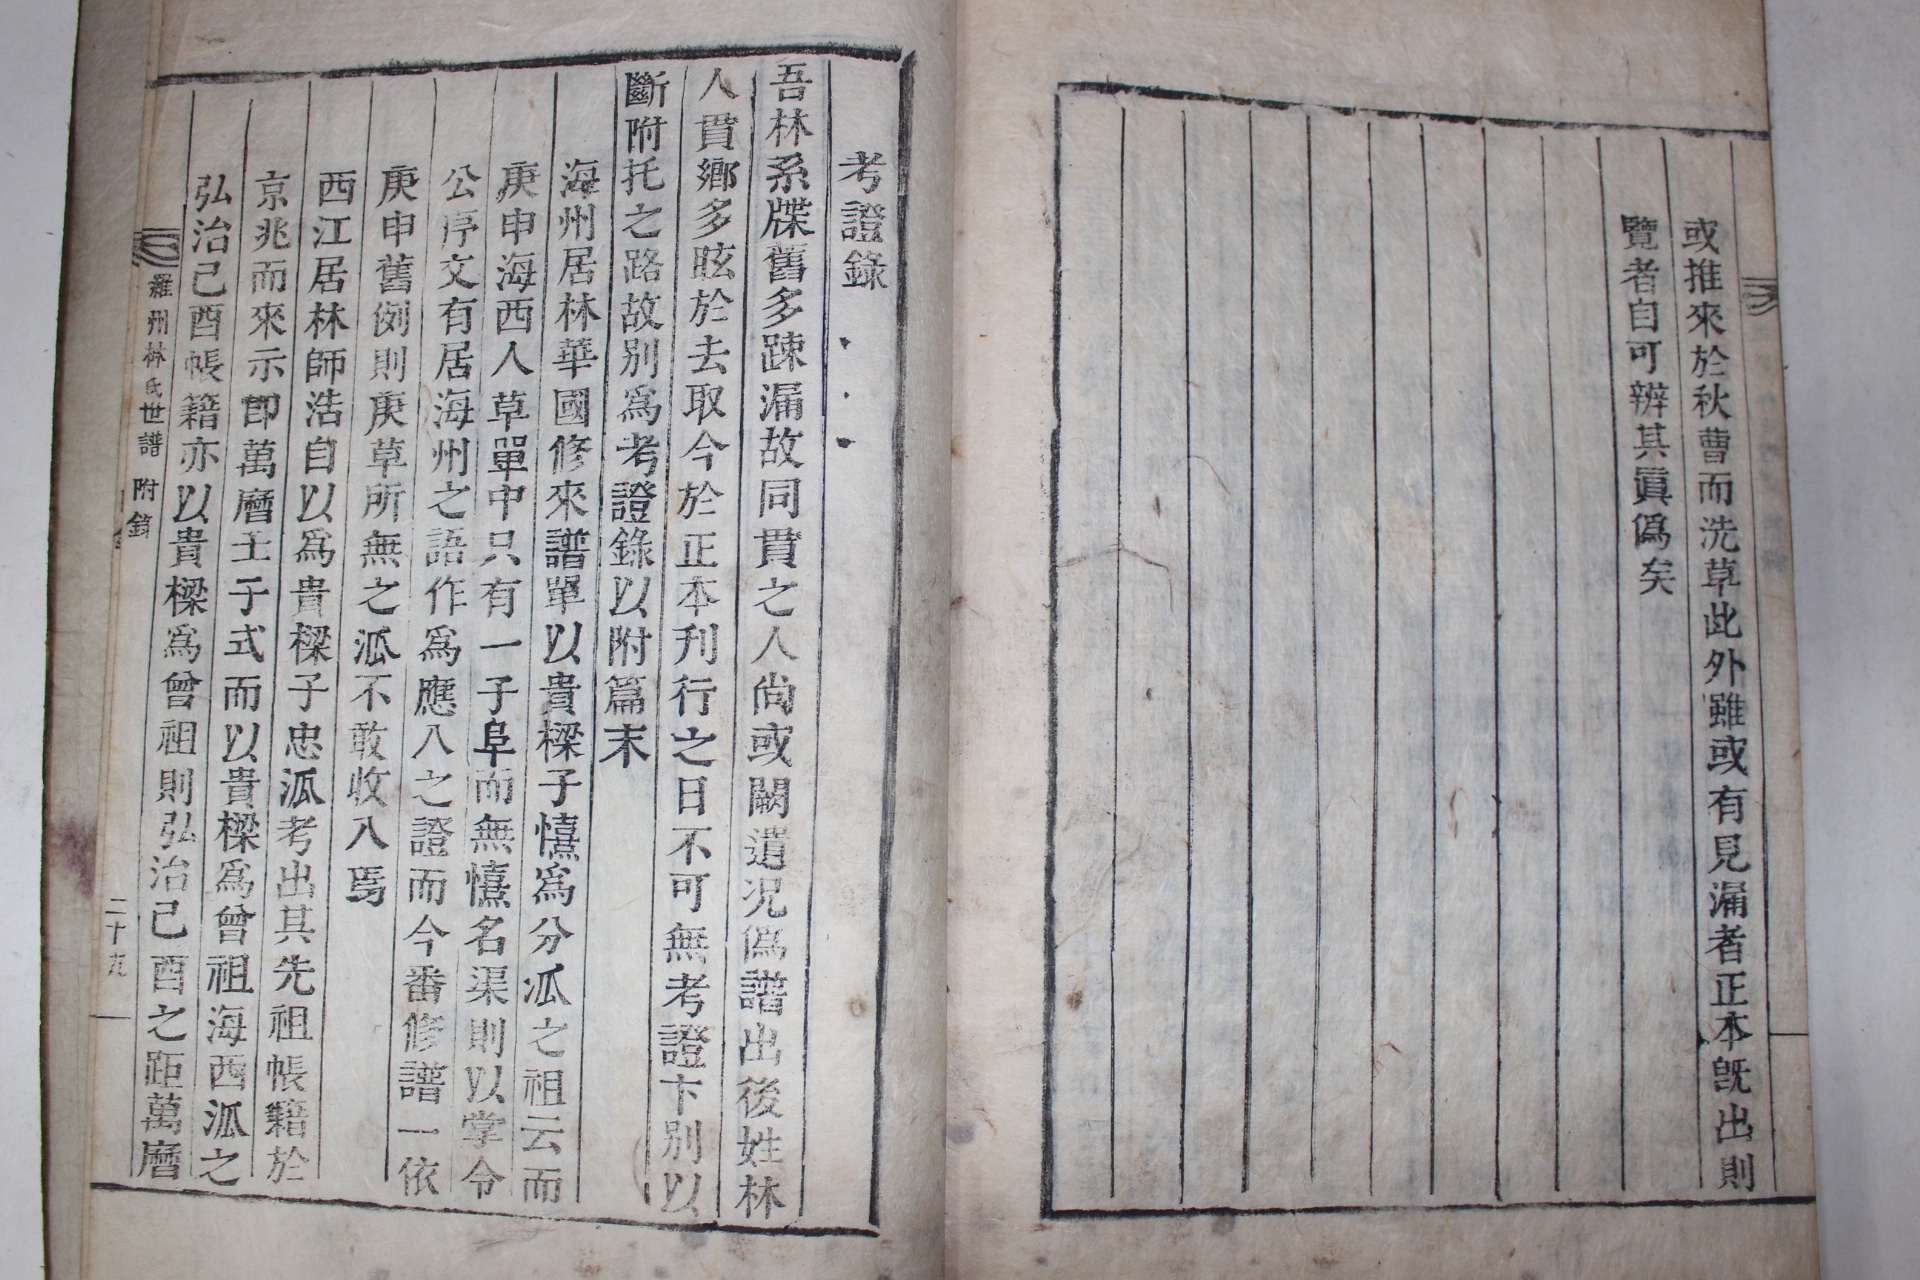 或推來於秋曹而洗草此外雖或有見漏者正本旣出則
覽者自可辨其眞僞矣
考證錄
吾林系牒舊多踈漏故同貫之人尙或闕遺况僞譜出後姓林
人貫鄕多眩於去取今於正本刋行之日不可無考證卞別以
斷附托之路故别爲考證錄以附篇末
海州居林華國修來譜單以貴樑子憘爲分泒之祖云而
庚申海西人草單中只有一子阜而無憘名渠則以掌令
公序文有居海州之語作爲應入之證而今番修譜一依
庚申舊例則庚草所無之泒不敢收入焉
西江居林師浩自以爲貴樑子忠泒考出其先祖帳籍於
京兆而來示卽萬曆壬子式而以貴樑爲曾祖海西泒之
弘治己酉帳籍亦以貴樑爲曾祖則弘治己酉之距萬曆
羅州林氏世譜 附錄
二十九